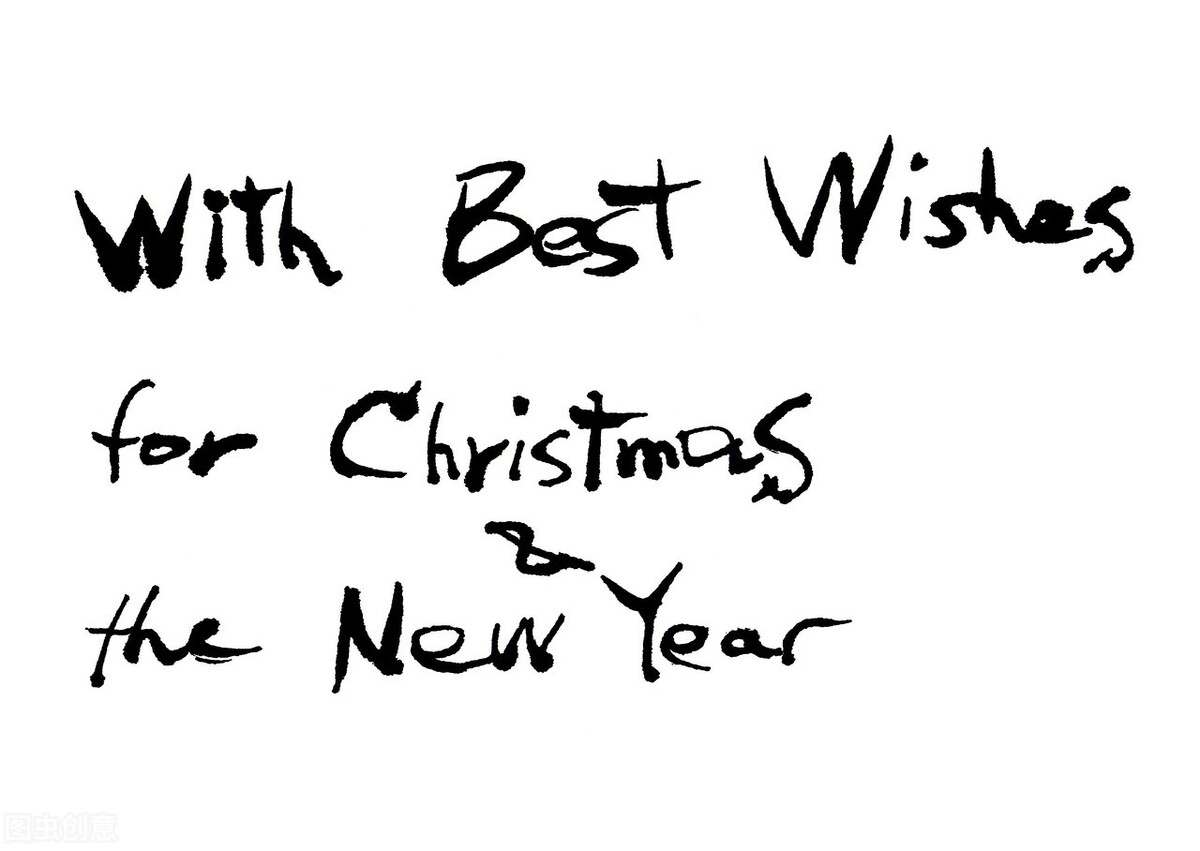 With Best Wishes
for Christmas
&
the New Year
图虫创意